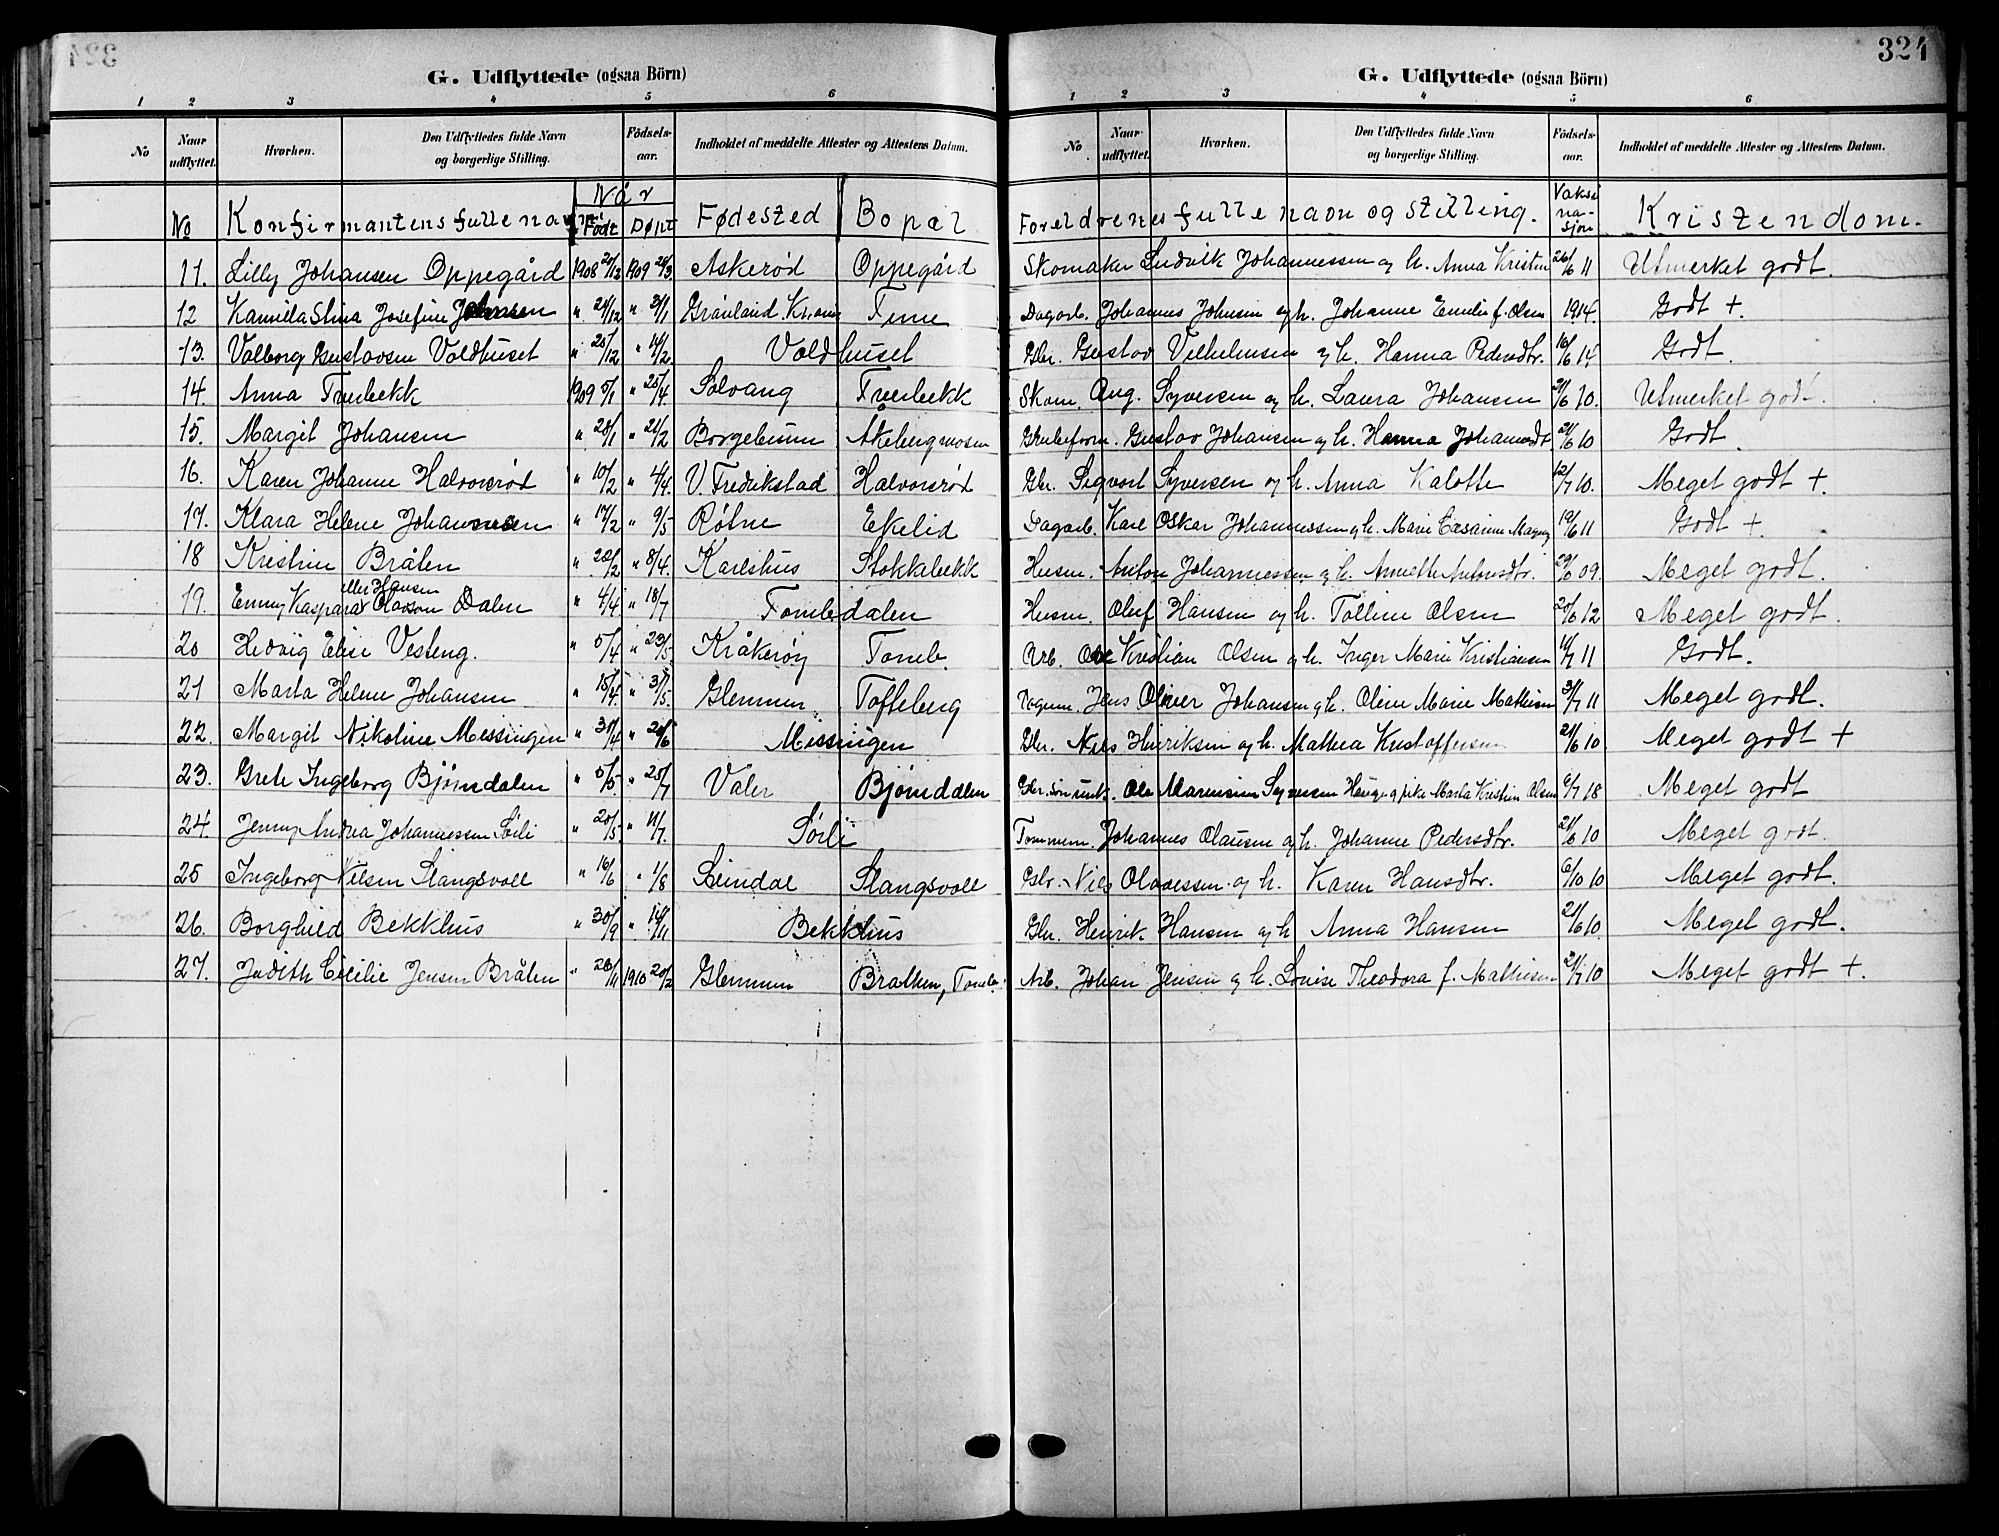 324
G. Udflyttede (ogsaa Börn)
1 2 3 4 5 6
No Naar udflyttet. Hvorhen. Den Udflyttedes fulde Navn og borgerlige Stilling. Födsels-aar. Indholdet af meddelte Attester og Attestens Datum.
No Konfirmantens fulle navn Når Født Døpt Fødested Bopæl
11. Lilly Johansen Oppegård 1908 1909 28/3 Askerød Oppegård
12 Kamilla Stina Josefine " 24/12 " 3/1 Grønland Tune
13. Valborg Gustavsen Voldhuset " 25/12 " 14/2 Voldhuset
14. Anna Tverbekk 1909 5/1 " 25/4 Solvang Tverbekk
15. Margit Johansen " 28/1 " 21/2 Borgebunn Åkebergmosen
16. Karen Johanne Halvorsrød " 10/2 " 4/4 V. Fredrikstad Halvorsrød
17. Klara Helene Johannessen " 17/2 " 9/5 Røtne Ekelid
18 Kristine Bråten " 20/2 " 8/4 Karlshus Stokkabekk
19. Enny Kaspara Olavson eller Hansen Dalen " 4/4 " 18/7 Tombdalen
20 Hedvig Elise Vesteng. " 5/4 " 23/5 Kråkerøy Tomb.
21 Marta Helene Johansen " 15/4 " 31/5 Glemmen Tofteberg
22. Margit Nikoline Messingen " 31/4 " 20/6 Messingen
23. Grete Ingeborg Bjørndalen " 5/5 " 25/7 Våler Bjørndalen
24. Jenny Andrea Johannessen Sørli " 20/5 " 11/7 Sørli
25 Ingeborg Nilsen Slangsvoll " 16/6 " 1/8 Slangsvoll
26. Borghild Bekkhus " 30/9 " 14/11 Bekkhus
27. Judith Cecilie Jensen Bråten " 28/11 1910 20/2 Glemmen Bråtten, Tomb.
324
G. Udflyttede (ogsaa Börn)
1 2 3 4 5 6
No Naar udflyttet. Hvorhen. Den Udflyttedes fulde Navn og borgerlige Stilling. Födsels-aar. Indholdet af meddelte Attester og Attestens Datum.
Foreldrenes fulle navn og stilling. Vaksinasjon Kristendom.
Skomaker Ludvik Johannessen og h. Anna Kristin 26/6 11 Utmerket godt.
Dagarb. Johannes Johnsen og h. Johanne Emilie f. Olsen 1914. Godt +
Gbr. Gustav Vilhelmsen og h. Hanna Pedersdtr. 16/6 14. Godt.
Skom. Aug. Syversen og h. Laura Johansen 21/6 10. Utmerket godt.
Gustav Johansen og h. Hanna Johannsdt. 21/6 10 Godt.
Gbr. Sigvart Syversen og h. Anna Kalotte 12/7 10. Meget godt +.
Dagarb. Karl Oskar Johannessen og h. Marie 19/6 11 Godt +
Husm. Anton Johannessen og h. Annette Antonsdtr. 29/6 09. Meget godt.
Husm. Oluf Hansen og h. Tolline Olsen 20/6 12 Meget godt.
Arb. Kristian Olsen og h. Inger Marie Kristiansen 11/7 11 Godt.
Jens Oliver Johansen og h. Oline Marie Mathisen 31/7 11 Meget godt.
Gbr. Nils Hinriksen og h. Mathea Kristoffersen 21/6 10 Meget godt +
Gbr. sønn unk. Ole Marensius Syversen Hauge og pike Marta Kristine Olsen 6/7 18 Meget godt
Tømmerm. Johannes Olausen og h. Johanne Pedersdtr. 21/6 10 Meget godt.
Gbr. Nils Olavessen og h. Karen Hansdtr. 6/10 10 Meget godt.
Gbr. Henrik Hansen og h. Anna Hansen 21/6 10. Meget godt.
Arb. Johan Jensen og h. Louise Theodora f. Mathisen 21/7 10 Meget godt +.